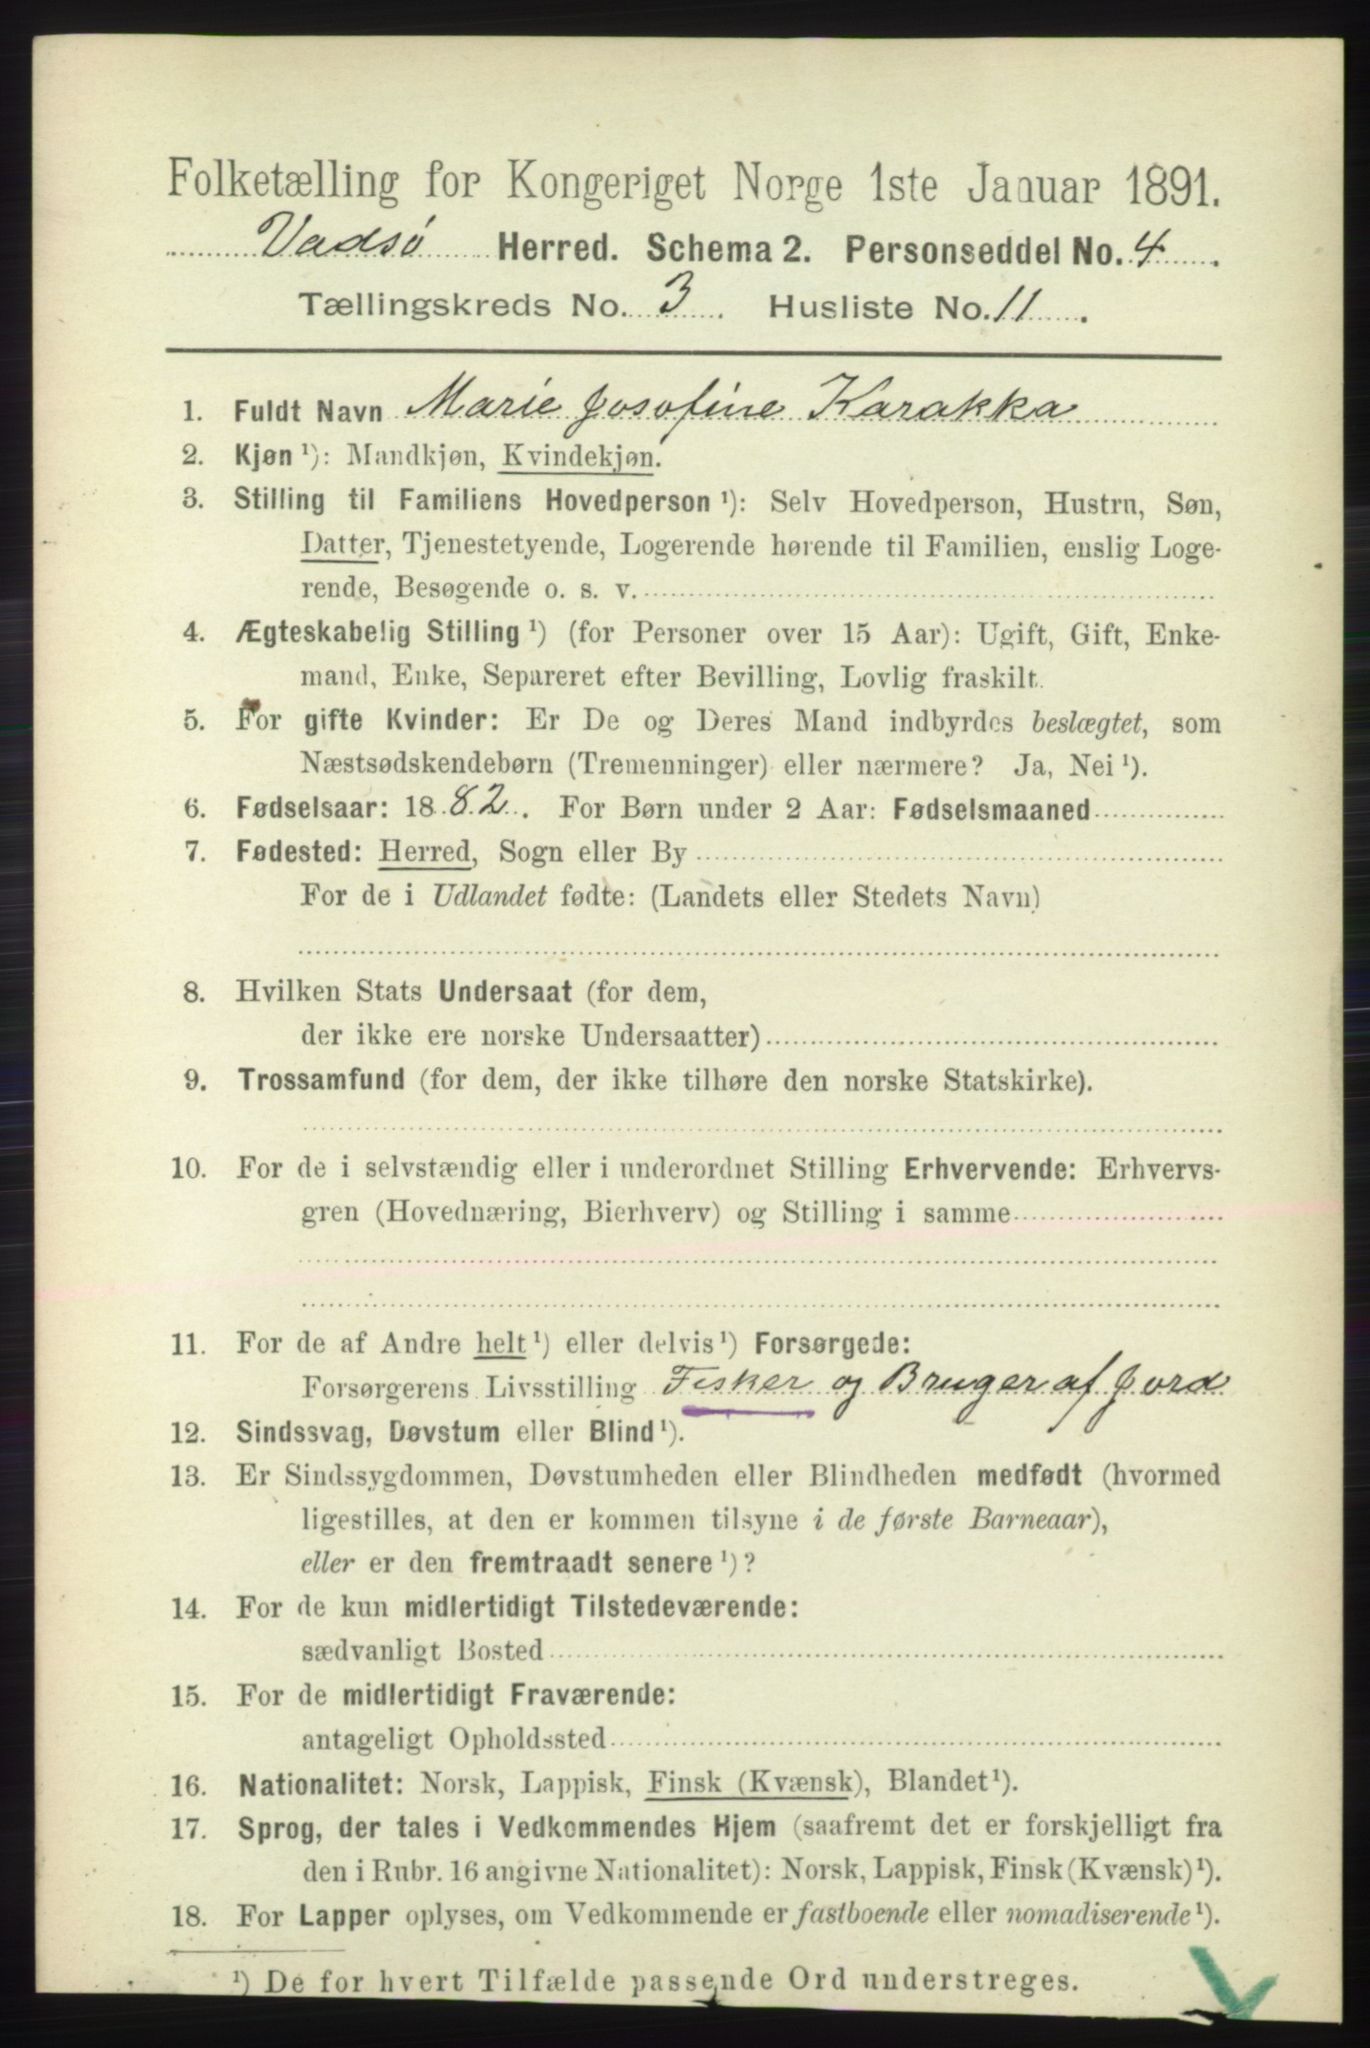 Folketælling for Kongeriget Norge 1ste Januar 1891.
Vadsø Herred. Schema 2. Personseddel No. 4.
Tællingskreds No. 3. Husliste No. 11.
1. Fuldt Navn Marie Josefine Karakka
2. Kjøn ¹): Mandkjøn, Kvindekjøn.
3. Stilling til Familiens Hovedperson ¹): Selv Hovedperson, Hustru, Søn,
Datter, Tjenestetyende, Logerende hørende til Familien, enslig Loge-
rende, Besøgende o. s. v.
4. Ægteskabelig Stilling ¹) (for Personer over 15 Aar): Ugift, Gift, Enke-
mand, Enke, Separeret efter Bevilling, Lovlig fraskilt.
5. For gifte Kvinder: Er De og Deres Mand indbyrdes beslægtet, som
Næstsødskendebørn (Tremenninger) eller nærmere? Ja, Nei ¹).
6. Fødselsaar: 1882. For Børn under 2 Aar: Fødselsmaaned
7. Fødested: Herred, Sogn eller By
For de i Udlandet fødte: (Landets eller Stedets Navn)
8. Hvilken Stats Undersaat (for dem,
der ikke ere norske Undersaatter)
9. Trossamfund (for dem, der ikke tilhøre den norske Statskirke).
10. For de i selvstændig eller i underordnet Stilling Erhvervende: Erhvervs-
gren (Hovednæring, Bierhverv) og Stilling i samme
11. For de af Andre helt ¹) eller delvis ¹) Forsørgede:
Forsørgerens Livsstilling Fisker og Bruger af Jord
12. Sindssvag, Døvstum eller Blind ¹).
13. Er Sindssygdommen, Døvstumheden eller Blindheden medfødt (hvormed
ligestilles, at den er kommen tilsyne i de første Barneaar),
eller er den fremtraadt senere ¹)?
14. For de kun midlertidigt Tilstedeværende:
sædvanligt Bosted
15. For de midlertidigt Fraværende:
antageligt Opholdssted
16. Nationalitet: Norsk, Lappisk, Finsk (Kvænsk), Blandet ¹).
17. Sprog, der tales i Vedkommendes Hjem (saafremt det er forskjelligt fra
den i Rubr. 16 angivne Nationalitet): Norsk, Lappisk, Finsk (Kvænsk) ¹).
18. For Lapper oplyses, om Vedkommende er fastboende eller nomadiserende ¹).
¹) De for hvert Tilfælde passende Ord understreges.